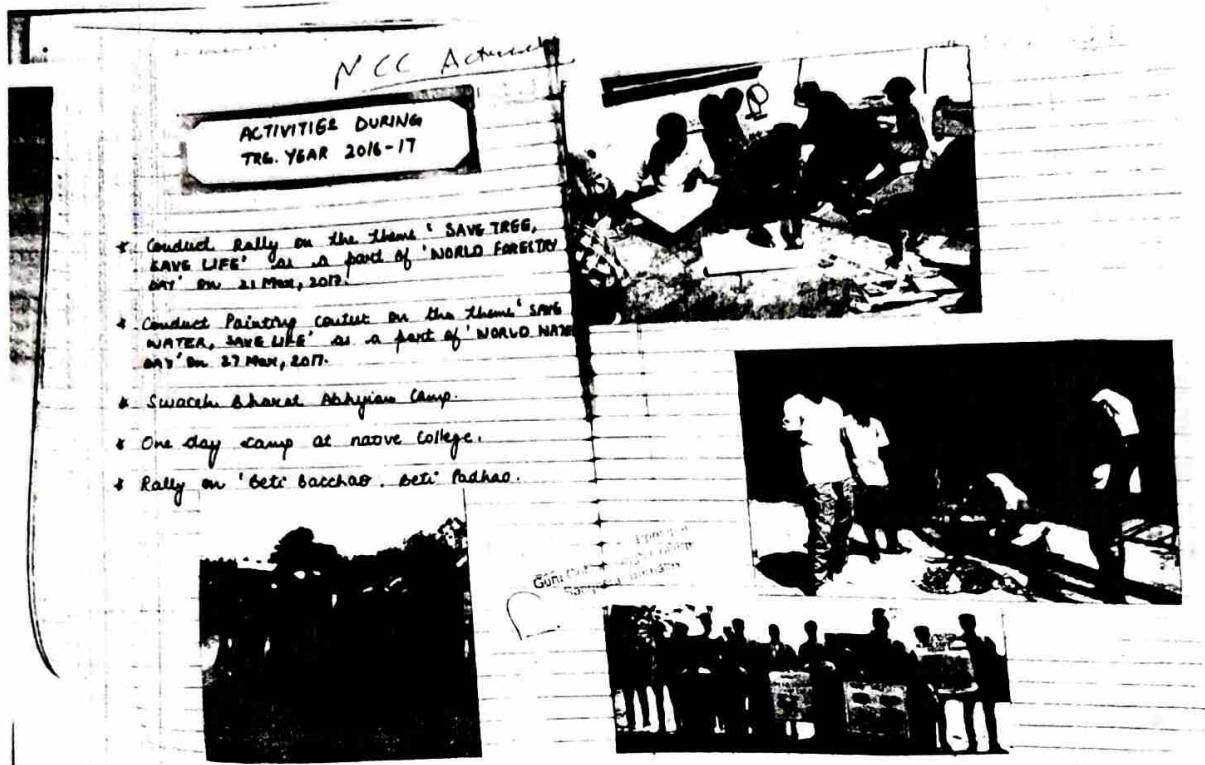 NCC
ACTIVITIES DURING
TRG. YEAR 2016-17
* Conduct Rally on the theme ' SAVE TREE,
SAVE LIFE' as a part of 'WORLD FORESTRY
DAY' on 21 Mar, 2017.
* Conduct Painting contest on the theme ' SAVE
WATER, SAVE LIFE' as a part of 'WORLD WATE
DAY' on 27 Mar, 2017.
* Swacch Bharat Abhyian Camp.
* One day camp at native College.
* Rally on 'Beti Bacchao. Beti Padhao.
Guru